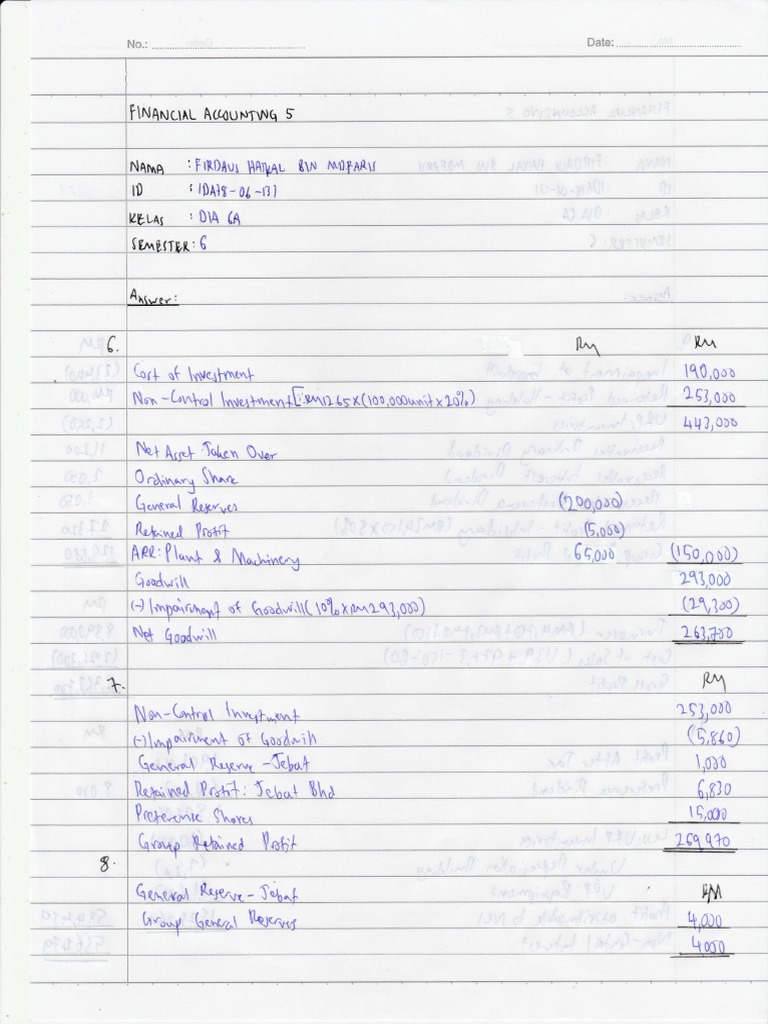 No.:
Date:
FINANCIAL ACCOUNTING 5
NAMA : FIRDAUS HAIKAL BIN MDFARIS
ID : IDA78-06-137
KELAS : DIA 6A
SEMESTER: 6
Answer:
6. RM RM
Cost of Investment 190,000
Non-Control Investment [:RM1.265×(100,000unit×20%) 253,000
443,000
Net Asset Taken Over
Ordinary Share
General Reserves (200,000)
Retained Profit (5,000)
ARR: Plant & Machinery 65,000 (150,000)
Goodwill 293,000
(-) Impairment of Goodwill (10%×RM293,000) (29,300)
Net Goodwill 263,700
7. RM
Non-Control Investment 253,000
(-) Impairment of Goodwill (5,860)
General Reserve - Jebat 1,000
Retained Profit: Jebat Bhd 6,830
Preference Shares 15,000
Group Retained Profit 269,970
8.
General Reserve - Jebat RM
Group General Reserves 4,000
4000